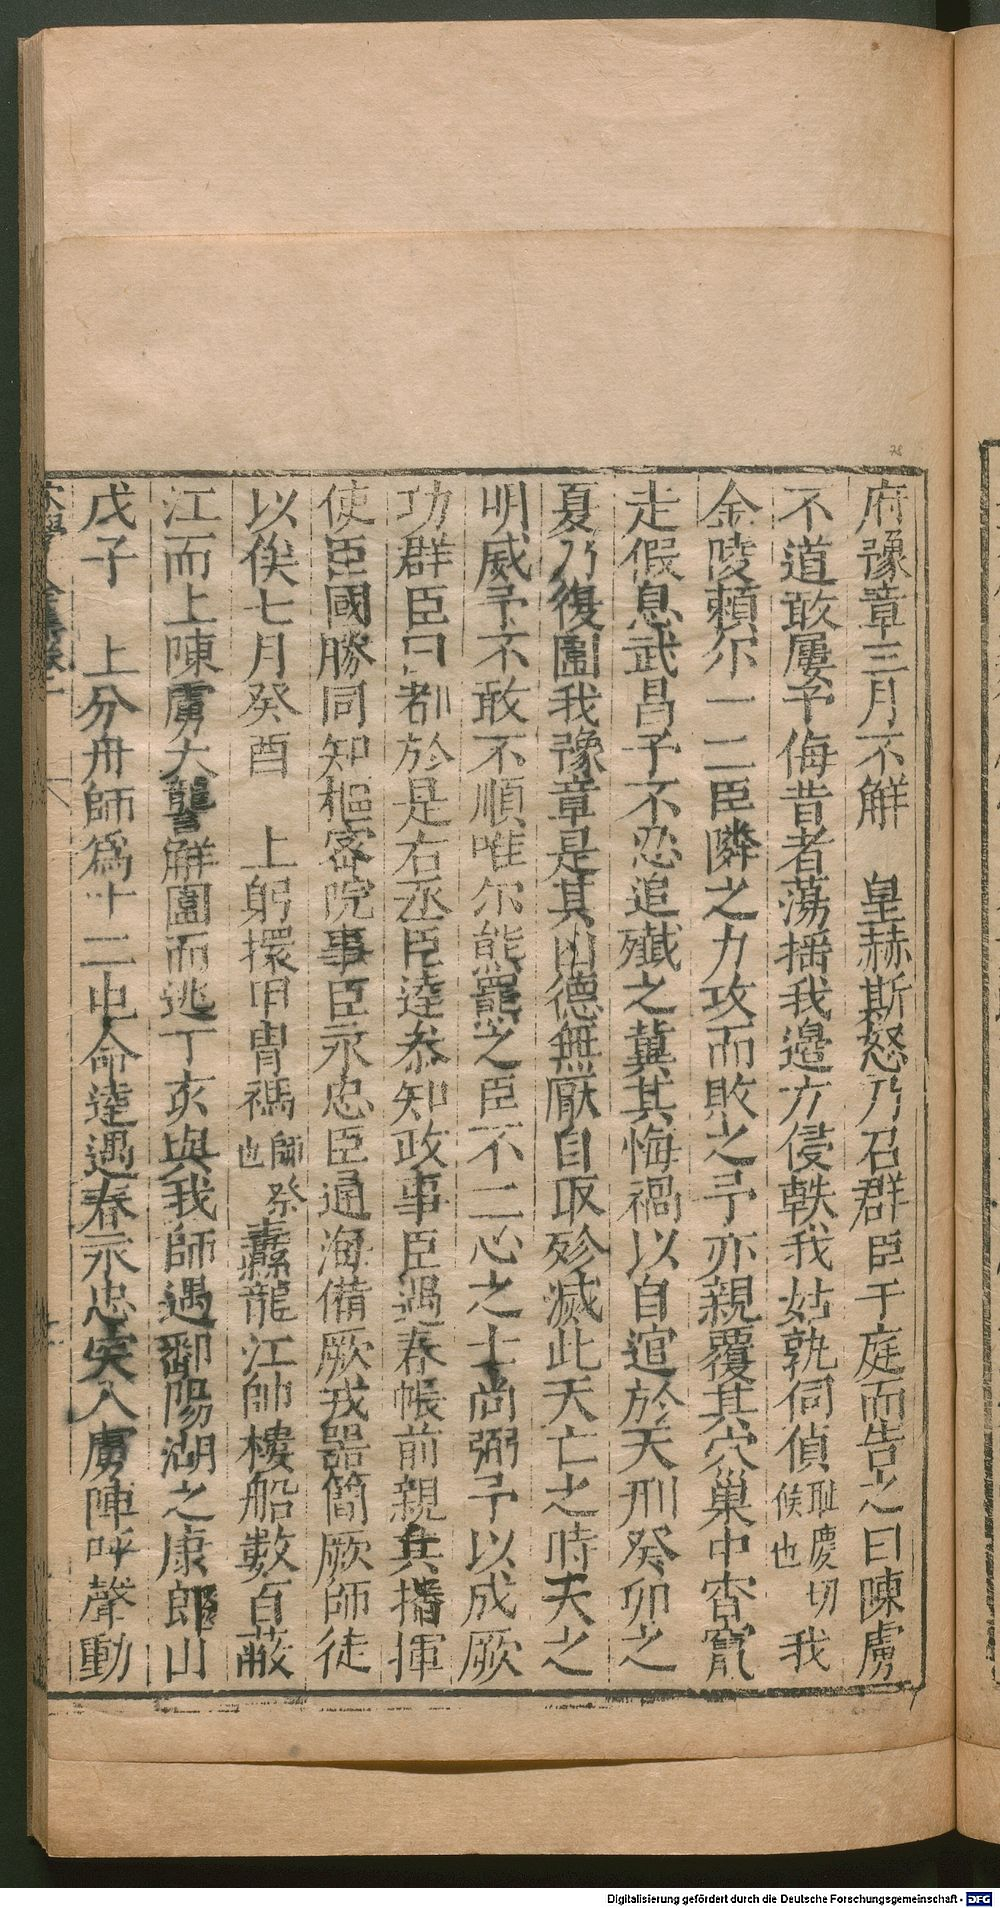 府豫章三月不解　皇赫斯怒乃召群臣于庭而告之曰陳虜
不道敢屢予侮昔者蕩搖我邊方侵軼我姑孰伺偵恥慶切候也我
金陵頼尔一二臣隣之力攻而敗之予亦親覆其穴巢中宵竄
走假息武昌予不忍追殱之冀其悔禍以自逭於天刑癸卯之
夏乃復圍我豫章是其凶德無厭自取殄滅此天亡之時天之
明威予不敢不順唯尔熊羆之臣不二心之士尚弼予以成厥
功群臣曰都於是右丞臣逹叅知政事臣遇春帳前親兵揩揮
使臣國勝同知樞密院事臣永忠臣通海備厥戎器簡厥師徒
以俟七月癸酉　上躬擐甲冑禡師祭也纛龍江帥樓船數百蔽
江而上陳虜大讋解圍而逃丁亥與我師遇鄱陽湖之康郎山
戊子　上分舟師爲十二屯命逹遇春永忠突入虜陣呼聲動
Digitalisierung gefördert durch die Deutsche Forschungsgemeinschaft - DFG